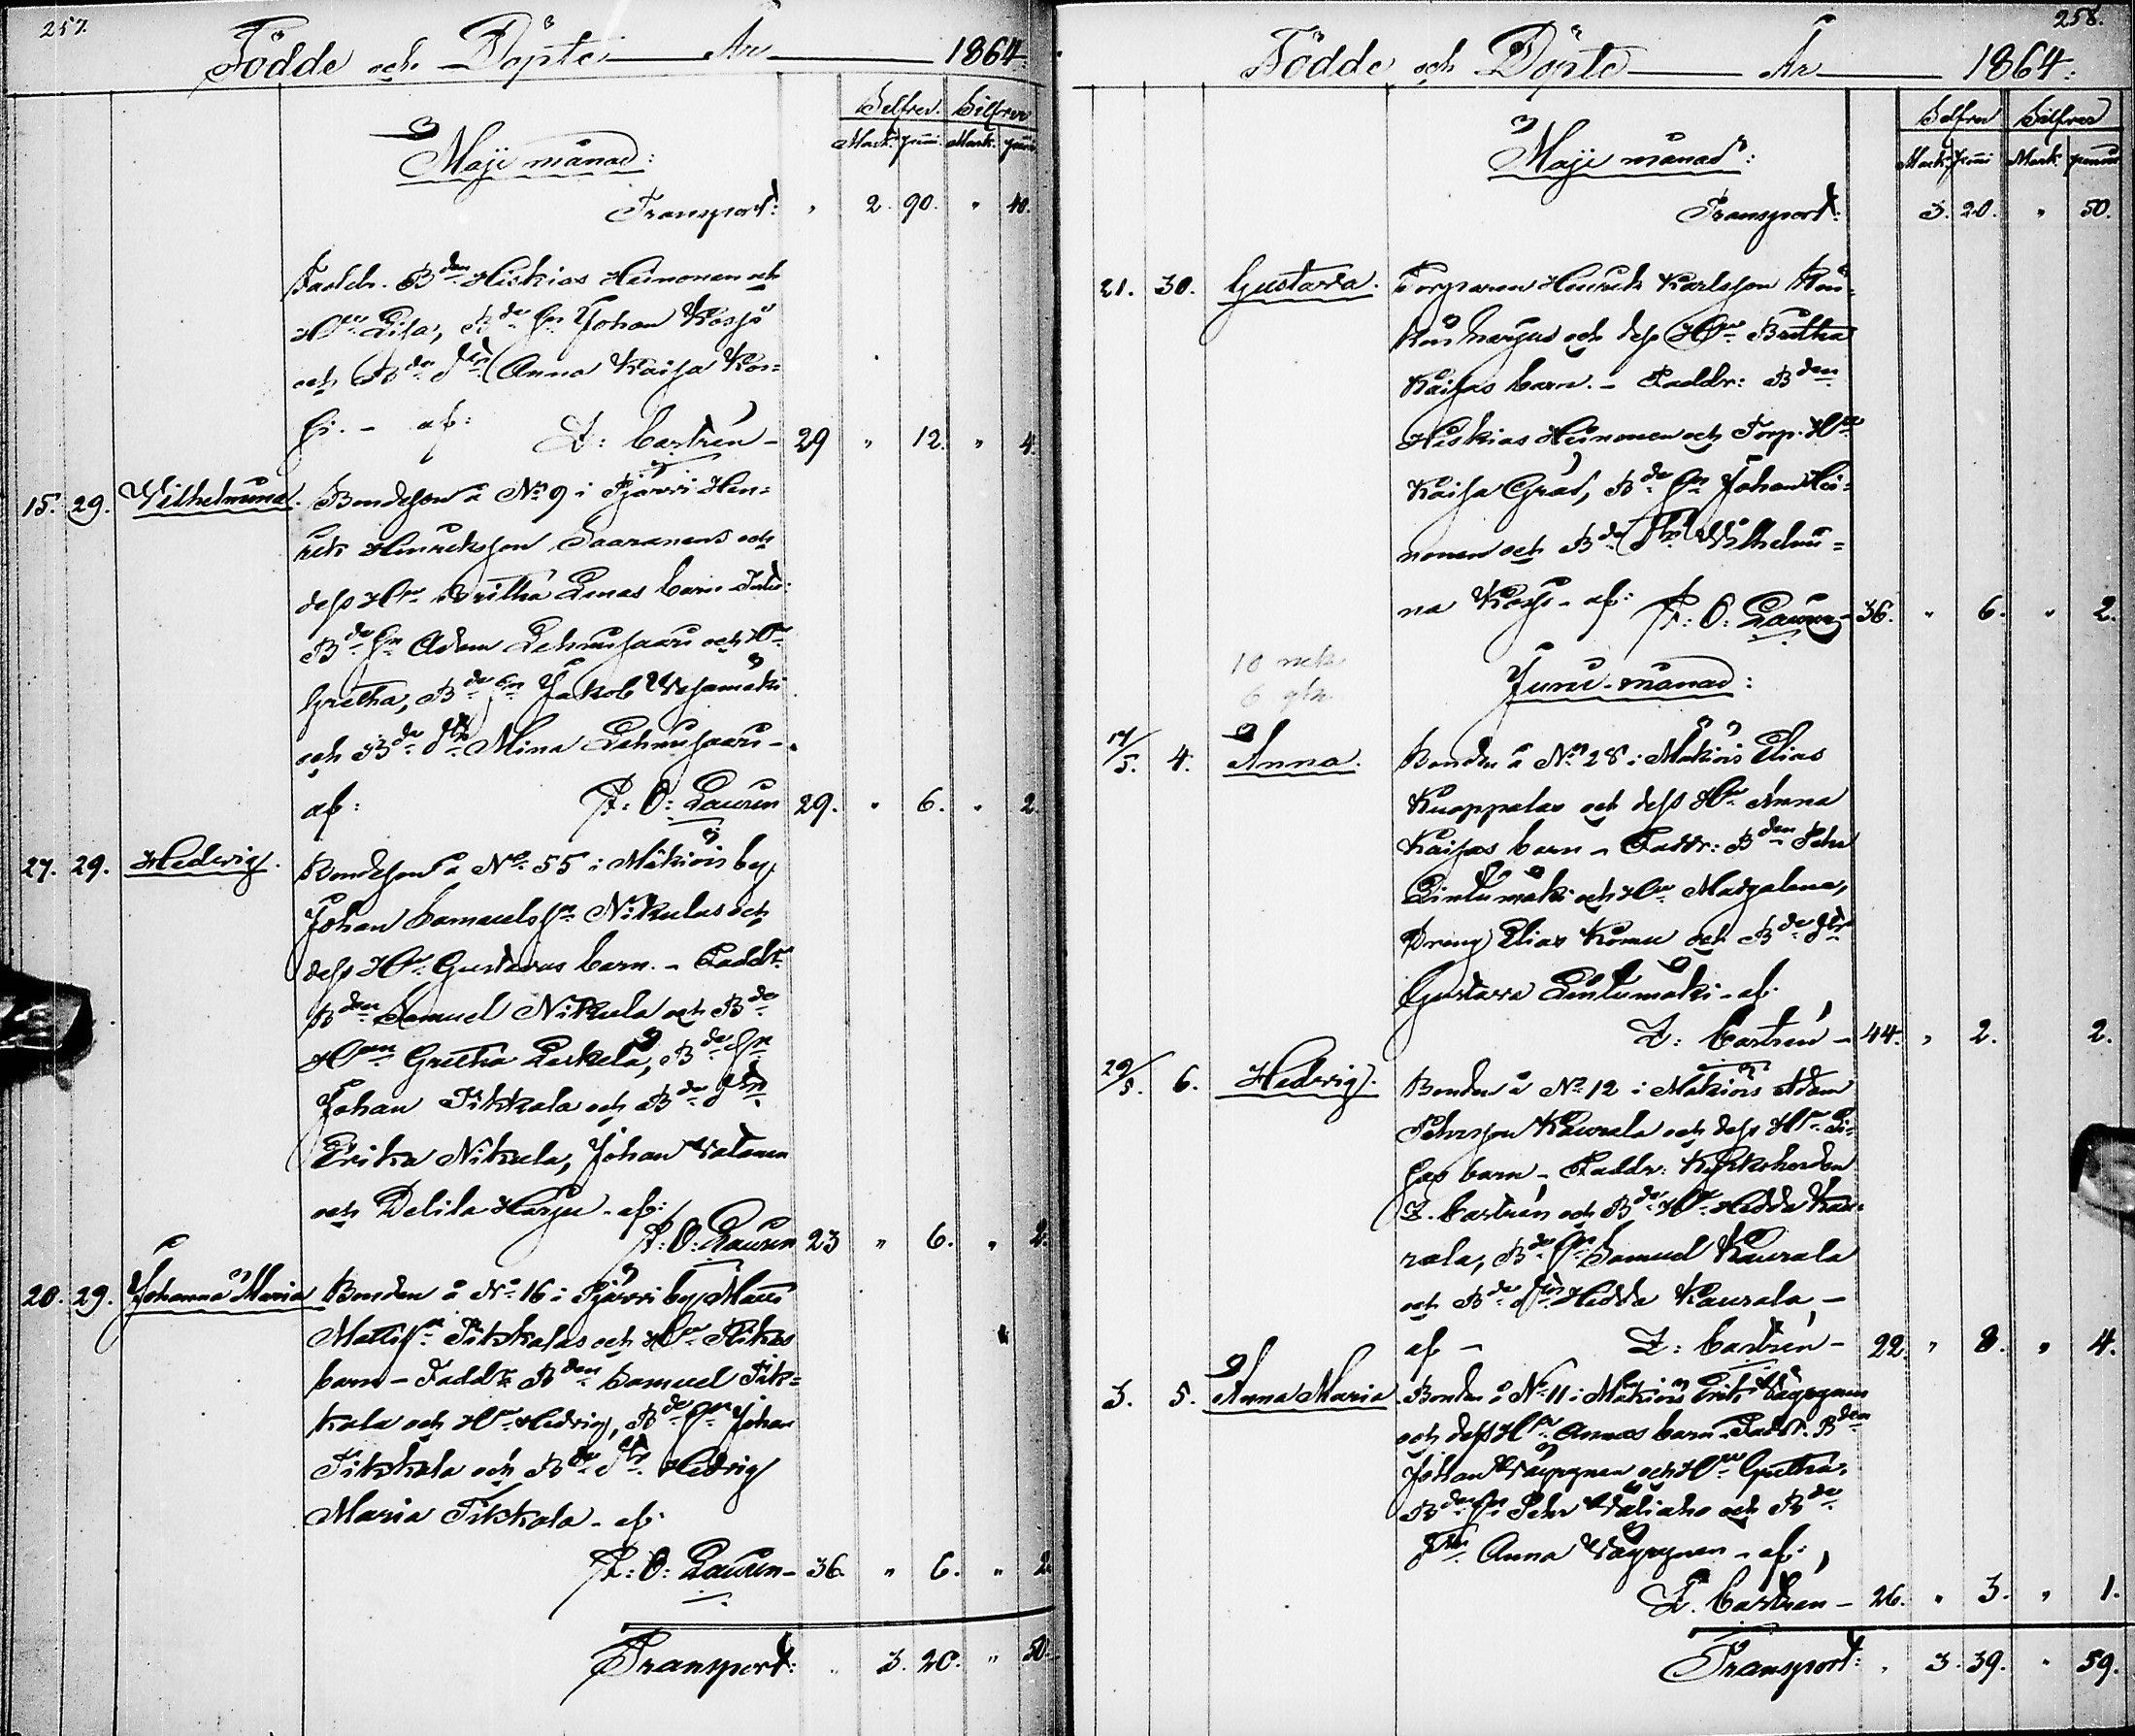 257.
Födde och Döpte År 1864.
Silfver. Silfver
Mark. penni. Mark. penni
Maji månad:
Transport: " 2. 90. " 40.
Faddr. Bden Hiskias Heinonen och
Hu Lisa, Bde Sn Johan
och Bde Dtr Anna Kaisa
af: Z: Castrén - 29 " 12. " 4.
15. 29. Wilhelmina. Bondeson å No 9 i Pjärvi Hen=
rik Henriksson Saaranens och
dess Hu Britha Lenas barn
Bde Sn Adam Lehmusaari och Hu
Gretha, Bde Sn Jakob
och Bde Dtr Mina Lehmusaari -
af: P: O: Lauren 29. " 6. " 2.
27. 29. Hedvig. Bondeson å No 55 i Mäkiöis by
Johan Samuelsson Nikulas och
dess Hu Gustavas barn. - Faddr
Bden Samuel Nikula och Bde
Hun Gretha Leskelä, Bde Sn
Johan Tikkala och Bde Dtr
Erika Nikula, Johan Valonen
och Delila Harju - af:
P: O: Lauren 23 " 6. " 2.
20. 29. Johanna Maria Bonden å No 16 i Pjärvi by Matts
Mattss. Tikkalas och Hu
barn - Faddr Bden Samuel Tik=
kala och Hu Hedvig, Bde Sn Johan
Tikkala och Bde Dtr Hedvig
Maria Tikkala - af.
P: O: Lauren - 36. " 6. " 2.
Transport: " 3. 20. " 50.
258.
Födde och Döpte År 1864:
Silfver Silfver
Mark penni Mark. penni
Maji månad:
Transport: 3. 20. " 50.
21. 30. Gustava. Torparen Henrik Karlsson
och dess Hu Britha
Kaisas barn. - Faddr: Bden
Hiskias Heinonen och Torp. Hu
Kaisa Bde Sn Johan Hei=
nonen och Bde Dtr Wilhelmi=
na - af: P: O: Lauren - 36. " 6. " 2.
10 mk
6 qk
Juni månad:
17/5. 4. Anna. Bonden å No 28 i Mäkiöis Elias
Kuoppalas och dess Hu Anna
Kaisas barn - Faddr: Bden Pehr
Lintumäki och Hu Magdalena,
Dreng Elias Komu och Bde Dtr
Gustava Lintumäki - af.
Z: Castrén - 44. " 2. 2.
29/5. 6. Hedvig. Bonden å No 12 i Mäkiöis Adam
Pehrsson Kaurala och dess Hu Li=
sas barn - Faddr: Kyrkoherden
Z. Castrén och Bde Hu Hedda Kau=
rala, Bde Sn Samuel Kaurala
och Bde Dtr Hedda Kaurala, -
af - Z: Castrén - 22. " 8. " 4.
3. 5. Anna Maria Bonden å No 11 i Mäkiöis Erik
och dess Hu Annas barn. Faddr. Bden
Johan och Hu Gretha,
Bde Sn Pehr Väliaho och Bde
Dtr Anna - af:
Z. Castrén - 26. " 3. " 1.
Transport: " 3. 39. " 59.